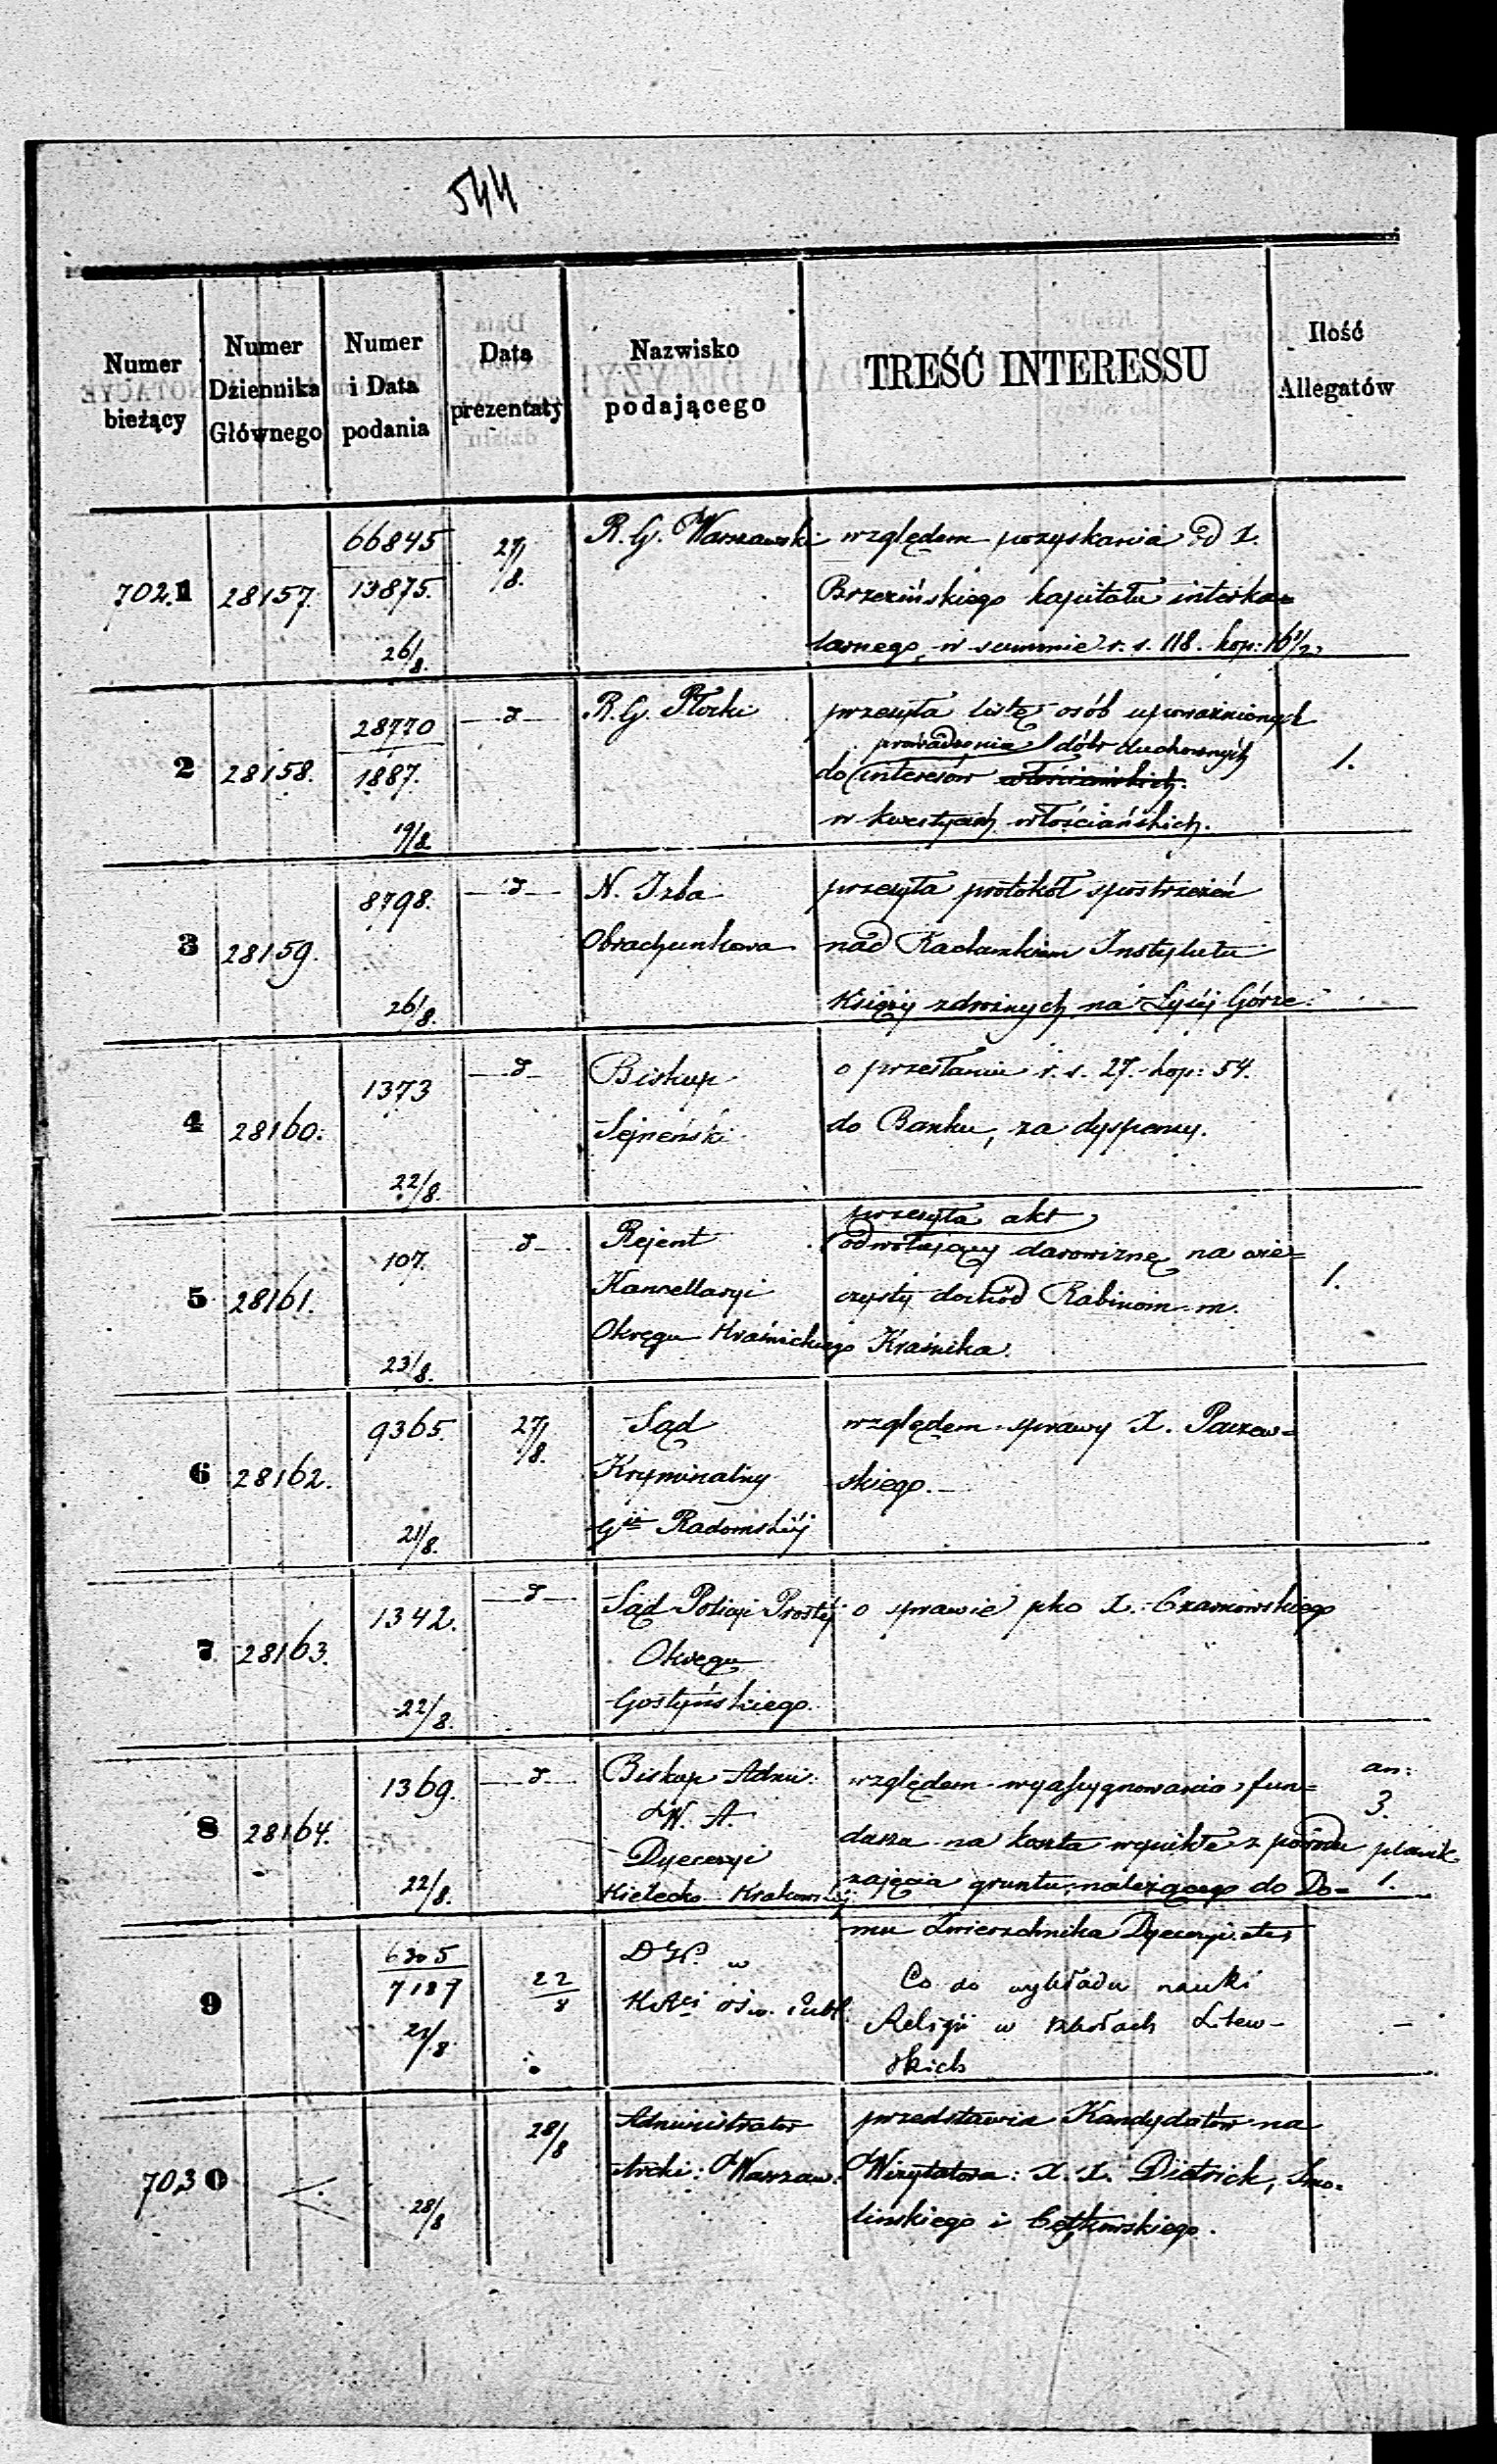 544
Numer bieżący
Numer Dziennika Głównego
Numer i Data podania
Data prezentaty
Nazwisko podającego
TREŚĆ INTERESSU
Ilość Allegatów
7021 28157. 66845 13875. 26/8. 27/8. R. G. Warszawski względem pozyskania od X.
Brzezińskiego kapitału interka=
larnego, w summie r. s. 118. kop: 16 1/2,
2 28158. 28770 1887. 19/8. d R. G. Płocki przesyła listę osób upoważnionych
prowadzenia dóbr duchownych
do interesów włościańskich.
w kwestyach włościańskich.
1.
3 28159. 8798. 26/8. d N. Izba przesyła protokół spostrzeżeń
Obrachunkowa nad Rachunkiem Instytutu
Księży zdrożnych na Łysej Górze.
4 28160. 1373 22/8. d Biskup o przesłaniu r. s. 27. kop: 54.
Sejneński do Banku, za dyspensy.
5 28161. 107. 23/8. d Rejent przesyła akt
odwołujący darowiznę na wie=
Kancellaryi czysty dochód Rabinom m.
Okręgu Kraśnickiego Kraśnika.
1.
6 28162. 9365. 21/8. 27/8. Sąd względem sprawy X. Parzew=
Kryminalny skiego.
Gii Radomskiej
7 28163. 1342. 22/8. d Sąd Policyi Prostej o sprawie pko X. Czarnowskiego
Okręgu
Gostyńskiego.
8 28164. 1369. 22/8. d Biskup Admi: względem wyassygnowania fun=
W. A. duszu na koszta wynikłe z powodu
Dyecezyi zajęcia gruntu, należącego do Do=
Kielecko Krakowskiej mu Zwierzchnika Dyecezyi etc
an: 3.
planik 1.
9 6305 7187 21/8. 22/8 D W. w Co do wykładu nauki
K R ośw. Publ. Religii w szkołach Litew-
skich
–
7030 28/8 28/8 Administrator przedstawia Kandydatów na
Archi: Warszaw: Wizytatora: X. X. Dietrich, Smo=
lińskiego i Cętkowskiego.